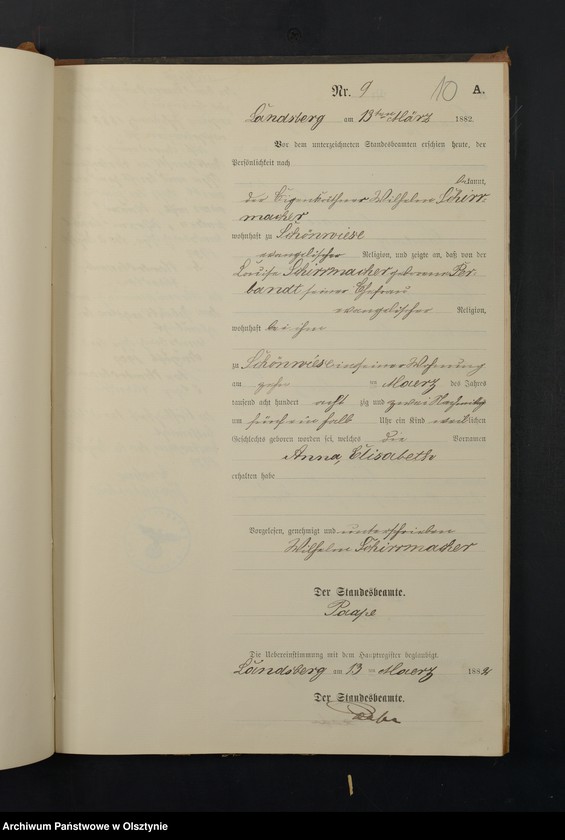 Nr. 9 10 A.
Landsberg am 13ten März 1882.
Vor dem unterzeichneten Standesbeamten erschien heute, der
Persönlichkeit nach
bekannt,
der Eigenkäthner Wilhelm Schirr-
macher
wohnhaft zu Schönwiese
evangelischer Religion, und zeigte an, daß von der
Louise Schirrmacher geborenen Per-
bandt seiner Ehefrau
evangelischer Religion,
wohnhaft bei ihm
zu Schönwiese in seiner Wohnung
am zehn ten Maerz des Jahres
tausend acht hundert acht zig und zwei Nachmittag
um fünf ein halb Uhr ein Kind weiblichen
Geschlechts geboren worden sei, welches die Vornamen
Anna, Elisabeth
erhalten habe
Vorgelesen, genehmigt und unterschrieben
Wilhelm Schirrmacher
Der Standesbeamte.
Die Uebereinstimmung mit dem Hauptregister beglaubigt.
Landsberg am 13 ten Maerz 1882
Der Standesbeamte.
Archiwum Państwowe w Olsztynie